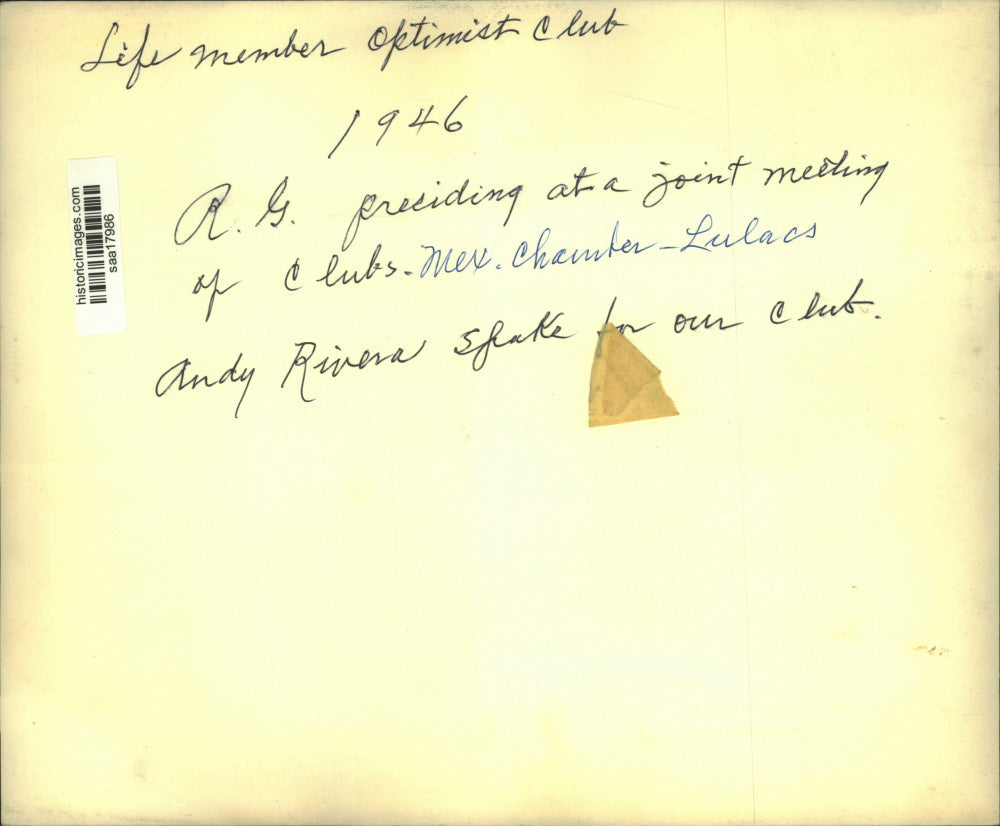 Life member Optimist Club
1946
R. G. preciding at a joint meeting
of Clubs - Mex. Chamber - Lulacs
Andy Rivera spake for our Club.
historicimages.com
saa17986